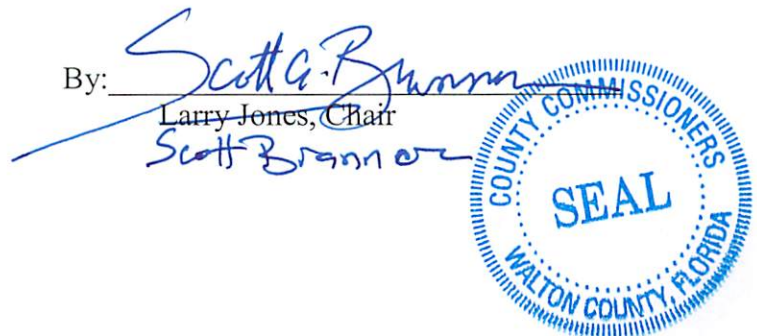 By: Scott A. Brannon
Larry Jones, Chair
Scott Brannon
COUNTY COMMISSIONERS
SEAL
WALTON COUNTY, FLORIDA